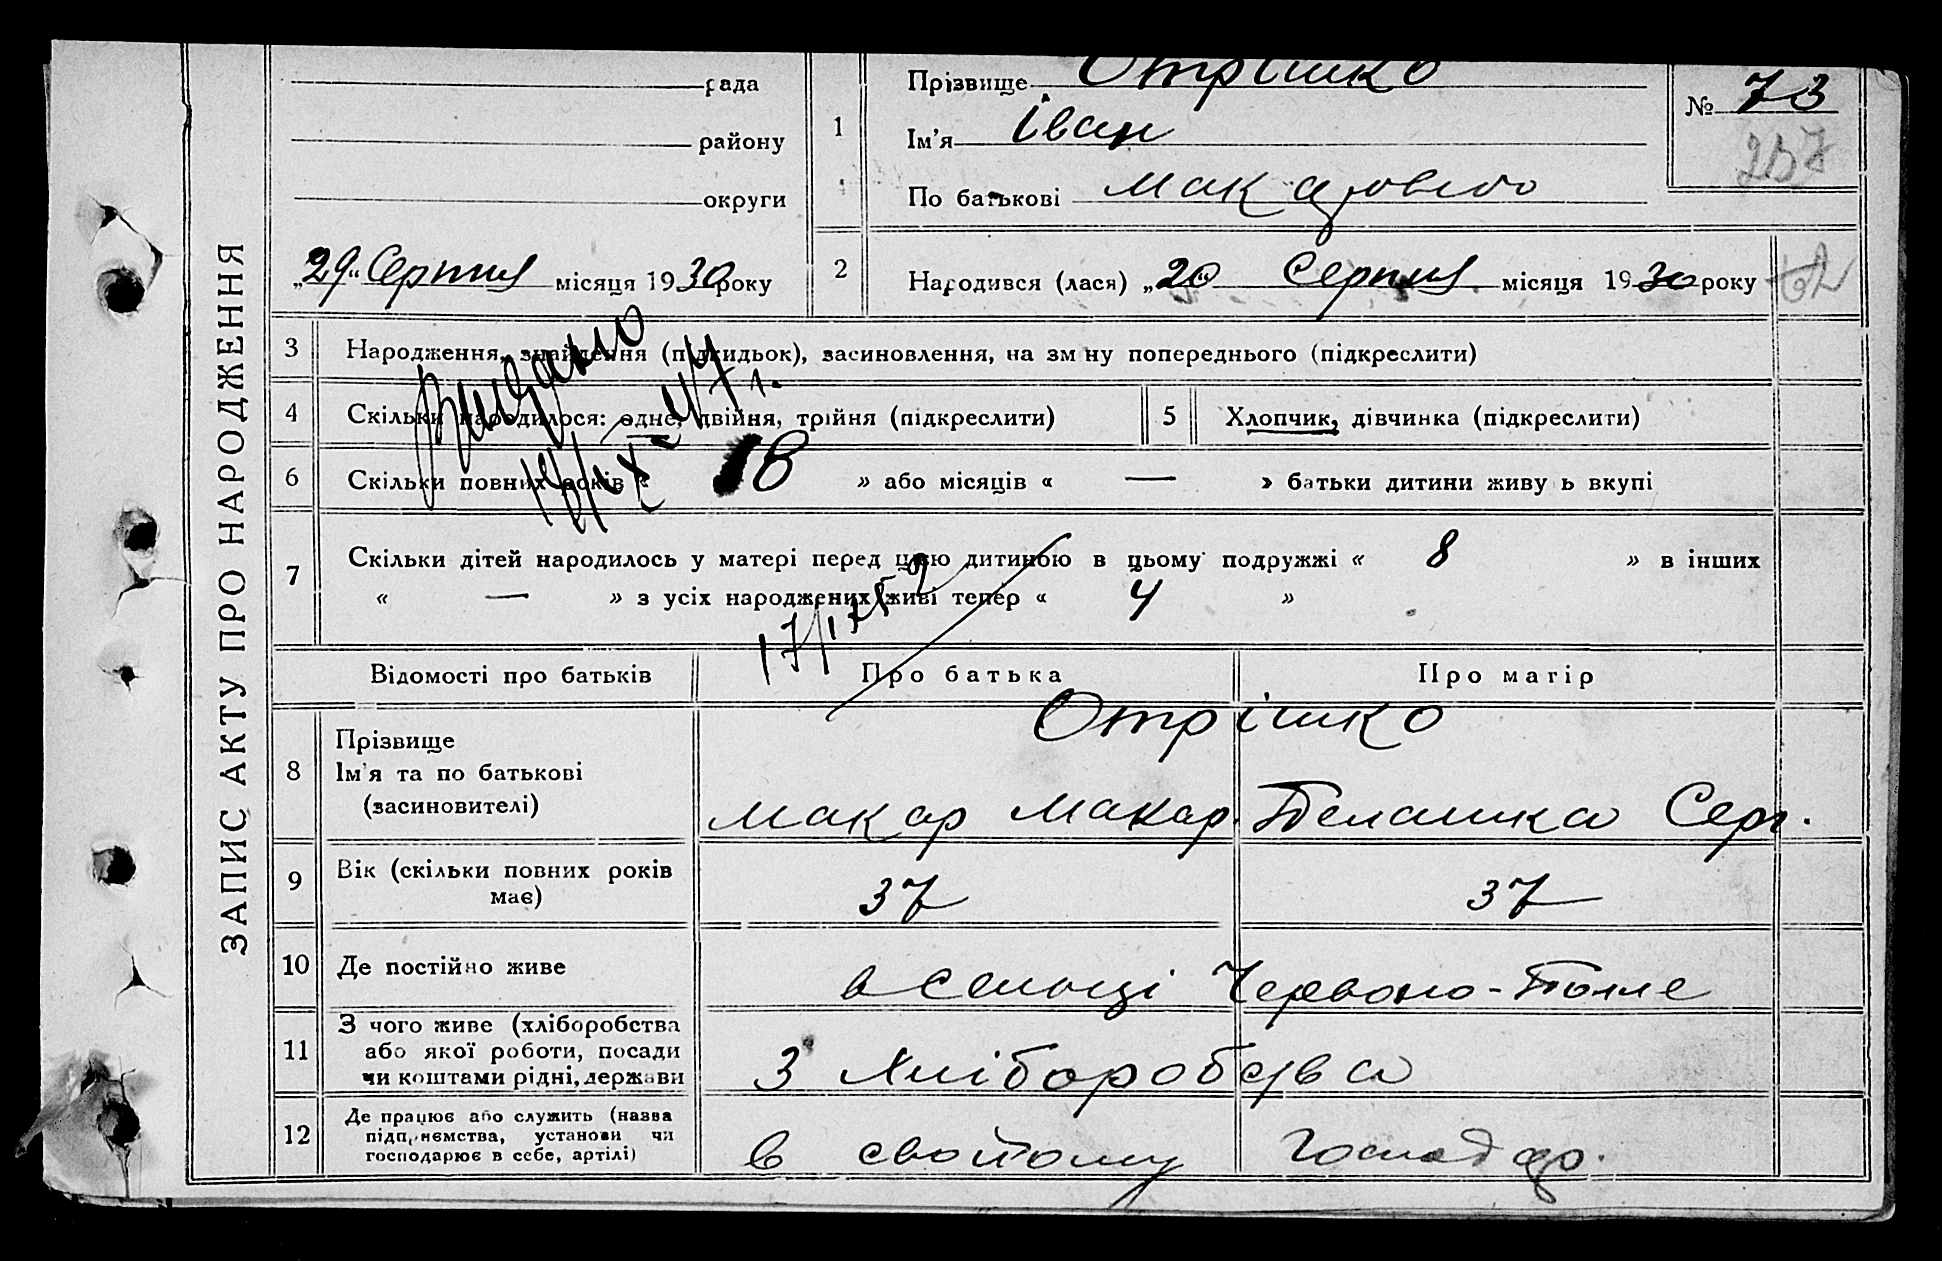 ЗАПИС АКТУ ПРО НАРОДЖЕННЯ
рада
району
округи
„29“ Серпня місяця 1930 року
1
Прізвище Отрішко
Ім'я Іван
По батькові Макарович
№ 73
237
2
Народився (лася) „20“ Серпня місяця 1930 року
3 Народження, знайдення (підкидьок), засиновлення, на зміну попереднього (підкреслити)
Видано
4 Скільки народилося: одне, двійня, трійня (підкреслити)
5 Хлопчик, дівчинка (підкреслити)
6 Скільки повних років « 18 » або місяців « — » батьки дитини живуть вкупі
7 Скільки дітей народилось у матері перед цією дитиною в цьому подружжі « 8 » в інших
« — » з усіх народжених живі тепер « 4 »
Відомості про батьків Про батька Про матір
8 Прізвище
Ім'я та по батькові
(засиновителі)
Отрішко
Макар Макар. Пелашка Серг.
9 Вік (скільки повних років
має)
37 37
10 Де постійно живе в сельці Червоно-Поле
11 З чого живе (хліборобства
або якої роботи, посади
чи коштами рідні, держави
З Хліборобства
12 Де працює або служить (назва
підприємства, установи чи
господарює в себе, артілі)
в свойому господар.